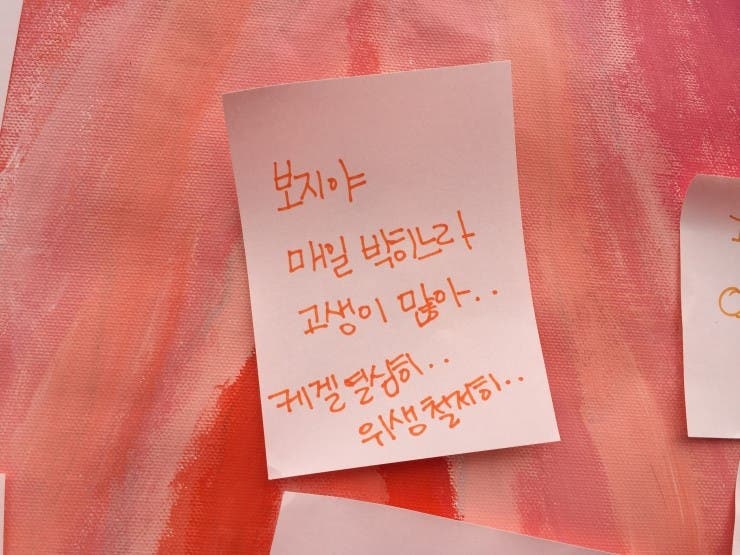 보지야
매일 박히느라
고생이 많아..
케겔 열심히..
위생 철저히..